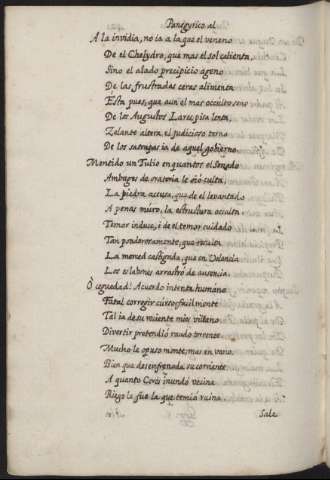 Panegyrico al
A la invidia, no ia a la que el veneno
De el Chelydro, que mas el sol calienta,
Sino el alado precipicio ageno
De las frustradas ceras alimenta
Esta pues, que aun el mas oculto seno
De los Augustos Lares pisa lenta,
Zelante altera, el judicioso terno
De los satrapas ia de aquel gobierno.
Mentido un Tulio en quantos el Senado
Ambages de oratoria le oió culta,
La piedra accusa, que de el levantado
A penas muro, la estructura occulta
Temor induce, i de el temor cuidado
Tan ponderosamente, que
La merced castigada, que en Valencia
Los eslabones arrastró de ausencia.
O ceguedad! Acuerdo intenta humano
Fatal corregir curso facilmente
Tal ia de su reciente mies villano
Divertir pretendió raudo torrente
Mucho le opuso monte, mas en vano,
Bien que desenfrenada su corriente,
A quanto Ceres inundó vecina
Riego le fue la que temió ruina
Sale